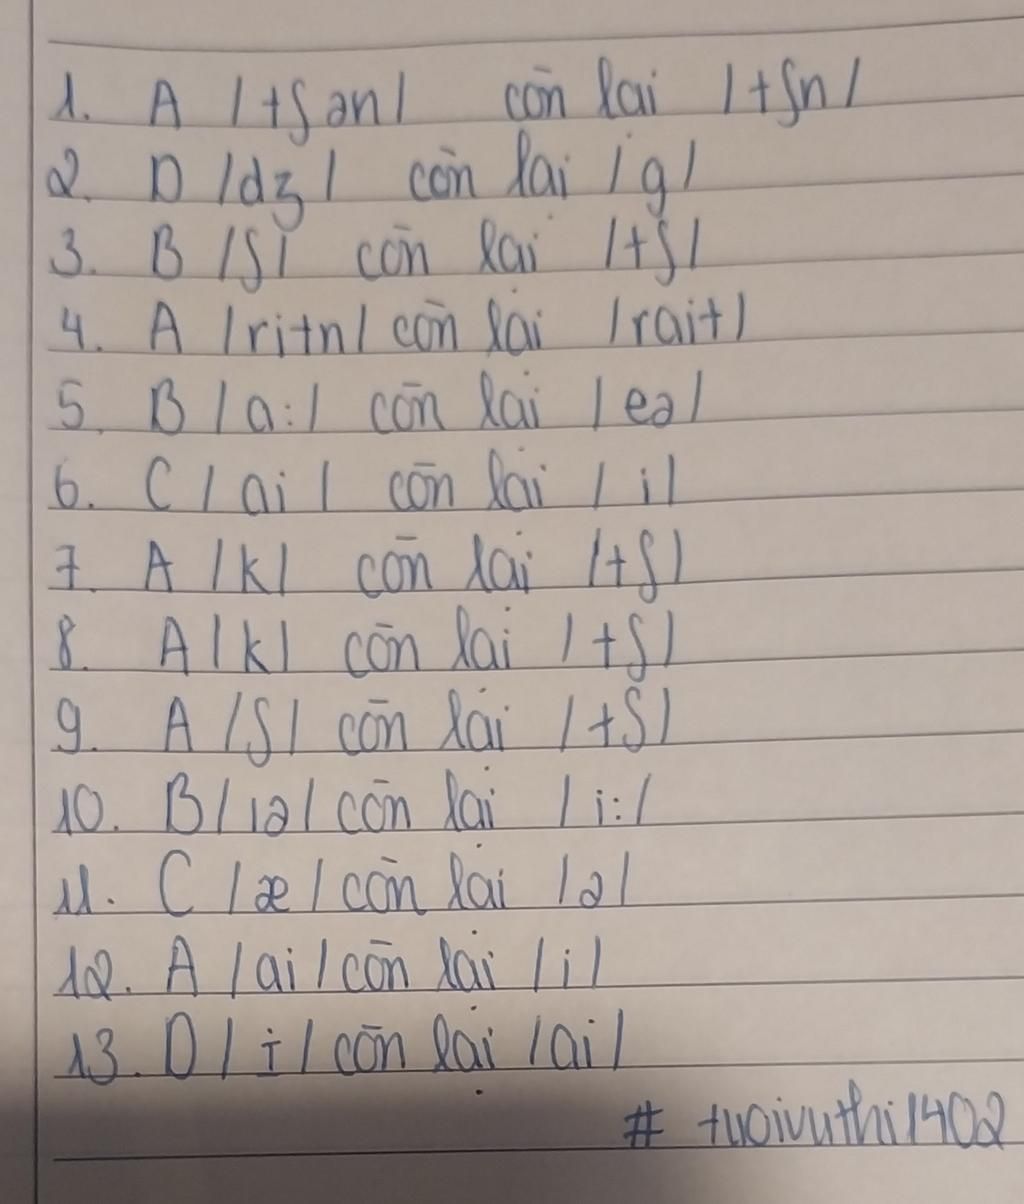 1. A /tʃən/ còn lại /tʃn/
2. D /dʒ/ còn lại /g/
3. B /ʃ/ còn lại /tʃ/
4. A /ritn/ còn lại /rait/
5. B /a:/ còn lại /eə/
6. C /ai/ còn lại /i/
7. A /k/ còn lại /tʃ/
8. A /k/ còn lại /tʃ/
9. A /ʃ/ còn lại /tʃ/
10. B /ıə/ còn lại /i:/
11. C /æ/ còn lại /ə/
12. A /ai/ còn lại /i/
13. D /i/ còn lại /ai/
# tuoivuthi1402